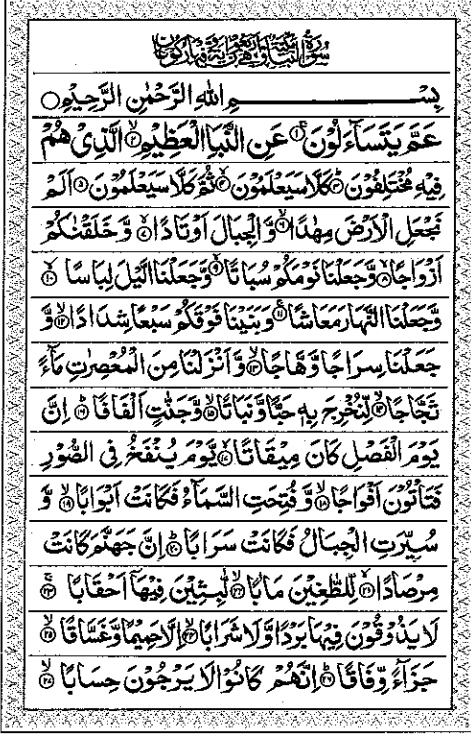 سُوْرَةُ النَّبَاِ مَكِّيَّةٌ وَّهِيَ اَرْبَعُوْنَ اٰيَةً وَّفِيْهَا رُكُوْعَانِ
بِسْمِ اللّٰهِ الرَّحْمٰنِ الرَّحِيْمِ ○
عَمَّ يَتَسَآءَلُوْنَ ۝۱ عَنِ النَّبَاِ الْعَظِيْمِ ۝۲ الَّذِيْ هُمْ
فِيْهِ مُخْتَلِفُوْنَ ۝۳ كَلَّا سَيَعْلَمُوْنَ ۝۴ ثُمَّ كَلَّا سَيَعْلَمُوْنَ ۝۵ اَلَمْ
نَجْعَلِ الْاَرْضَ مِهٰدًا ۝۶ وَّالْجِبَالَ اَوْتَادًا ۝۷ وَّخَلَقْنٰكُمْ
اَزْوَاجًا ۝۸ وَّجَعَلْنَا نَوْمَكُمْ سُبَاتًا ۝۹ وَّجَعَلْنَا الَّيْلَ لِبَاسًا ۝۱۰
وَّجَعَلْنَا النَّهَارَ مَعَاشًا ۝۱۱ وَّبَنَيْنَا فَوْقَكُمْ سَبْعًا شِدَادًا ۝۱۲ وَّ
جَعَلْنَا سِرَاجًا وَّهَّاجًا ۝۱۳ وَّاَنْزَلْنَا مِنَ الْمُعْصِرٰتِ مَآءً
ثَجَّاجًا ۝۱۴ لِّنُخْرِجَ بِهٖ حَبًّا وَّنَبَاتًا ۝۱۵ وَّجَنّٰتٍ اَلْفَافًا ۝۱۶ اِنَّ
يَوْمَ الْفَصْلِ كَانَ مِيْقَاتًا ۝۱۷ يَّوْمَ يُنْفَخُ فِي الصُّوْرِ
فَتَاْتُوْنَ اَفْوَاجًا ۝۱۸ وَّفُتِحَتِ السَّمَآءُ فَكَانَتْ اَبْوَابًا ۝۱۹ وَّ
سُيِّرَتِ الْجِبَالُ فَكَانَتْ سَرَابًا ۝۲۰ اِنَّ جَهَنَّمَ كَانَتْ
مِرْصَادًا ۝۲۱ لِّلطَّاغِيْنَ مَاٰبًا ۝۲۲ لّٰبِثِيْنَ فِيْهَآ اَحْقَابًا ۝۲۳
لَا يَذُوْقُوْنَ فِيْهَا بَرْدًا وَّلَا شَرَابًا ۝۲۴ اِلَّا حَمِيْمًا وَّغَسَّاقًا ۝۲۵
جَزَآءً وِّفَاقًا ۝۲۶ اِنَّهُمْ كَانُوْا لَا يَرْجُوْنَ حِسَابًا ۝۲۷